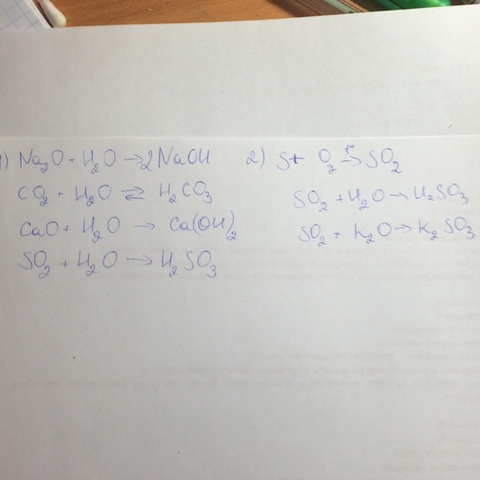 1) Na₂O + H₂O → 2NaOH
CO₂ + H₂O ⇄ H₂CO₃
CaO + H₂O → Ca(OH)₂
SO₂ + H₂O → H₂SO₃
2) S + O₂ →(t°) SO₂
SO₂ + H₂O → H₂SO₃
SO₂ + K₂O → K₂SO₃